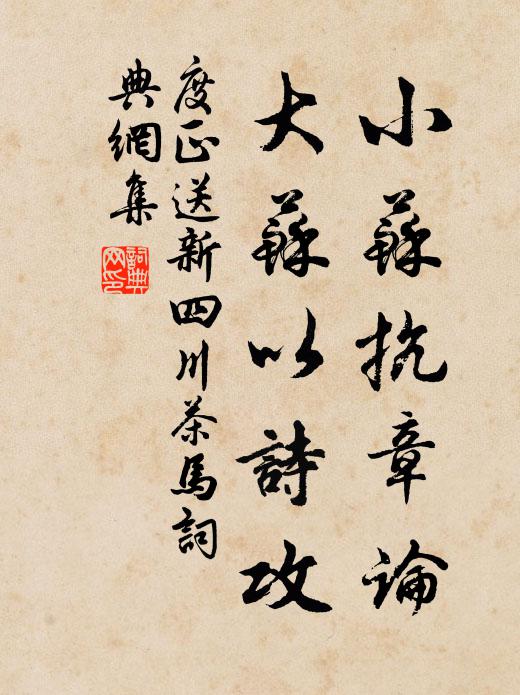 小蘇抗章論
大蘇以詩攻
度正送新四川茶馬詞
典網集
詞典
网印